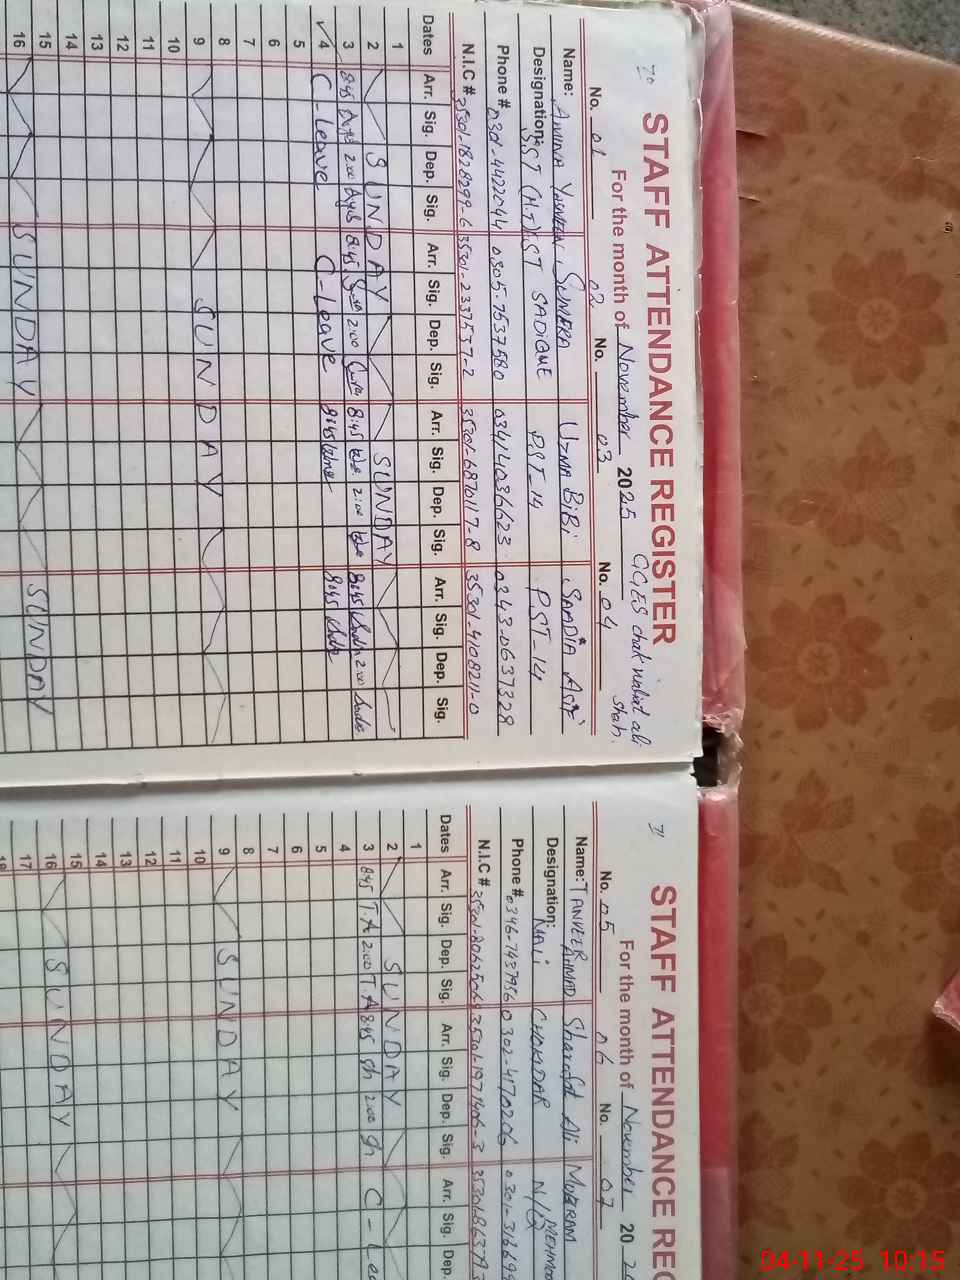 70
STAFF ATTENDANCE REGISTER
For the month of November 2025 GGES chak
Shah.
No. 01 02 No. 03 No. 04
Name: AMINA YASMEEN SUMERA UZMA BiBi SAADIA ASIF
Designation: SST (H.T) EST SADIQUE PST-14 PST-14
Phone # 0301-4422044 0305-7537580 03414036623 0343-0637328
N.I.C # 35301-1828299-6 35301-2337537-2 35301-6870117-8 35301-4108211-0
Dates Arr. Sig. Dep. Sig. Arr. Sig. Dep. Sig. Arr. Sig. Dep. Sig. Arr. Sig. Dep. Sig.
1
2 SUNDAY SUNDAY
3 8:45 2:00 8:45 2:00 8:45 2:00 8:45 2:00
4 C-Leave C-Leave 8:45 8:45
5
6
7
8
9 SUNDAY
10
11
12
13
14
15
16 SUNDAY SUNDAY
71
STAFF ATTENDANCE REG
For the month of November 20 2
No. 05 06 No. 07
Name: TANVEER AHMAD Sharafat Ali MUBEEN
Designation: MALI CHOKIDAR N/Q
Phone # 0346-7437956 0302-4170206 0301-31669
N.I.C # 35301-1971406-3
Dates Arr. Sig. Dep. Sig. Arr. Sig. Dep. Sig. Arr. Sig. Dep.
1
2 SUNDAY
3 8:45 T.A 2:00 T.A 8:45 Sh 2:00 Sh C-Lea
4
5
6
7
8
9 SUNDAY
10
11
12
13
14
15
16 SUNDAY
17
18
04-11-25 10:15